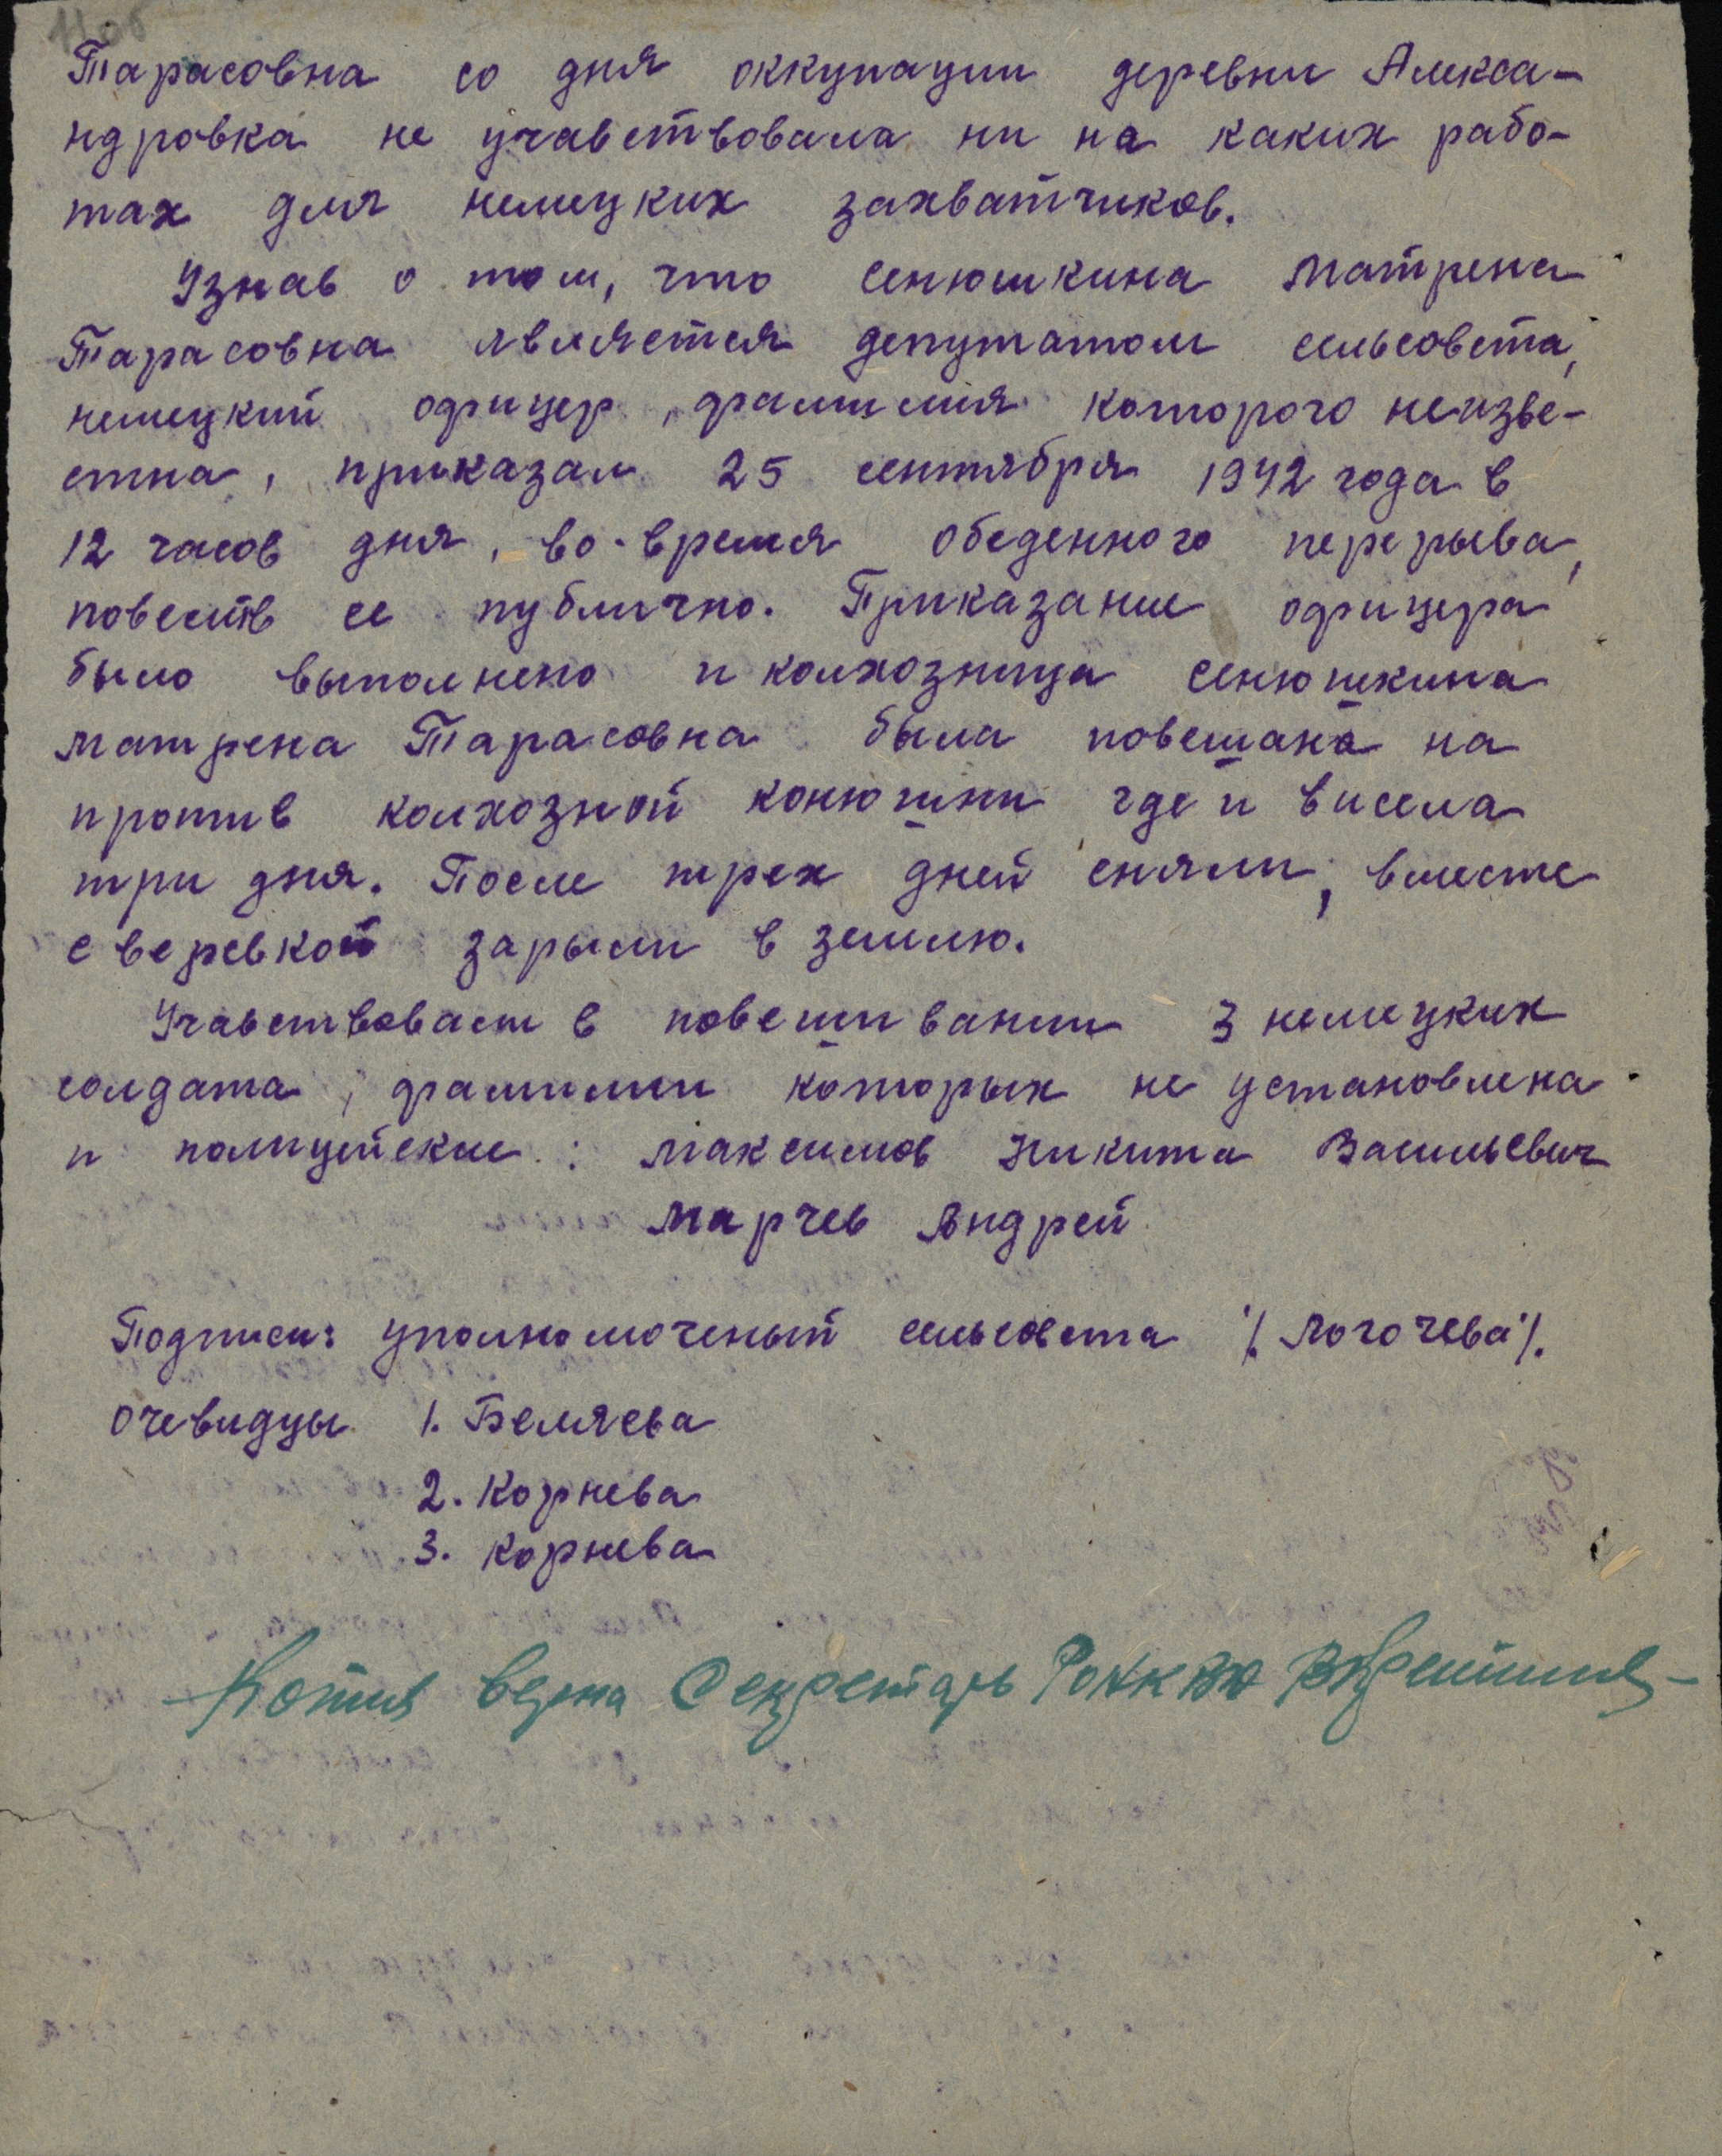 11об
Тарасовна со дня оккупации деревни Алекса-
ндровка не учавствовала ни на каких рабо-
тах для немецких захватчиков.
Узнав о том, что Сенюшкина Матрена
Тарасовна является депутатом сельсовета,
немецкий офицер, фамилия которого неизве-
стна, приказал 25 сентября 1942 года в
12 часов дня, во-время обеденного перерыва,
повесить ее публично. Приказание офицера
было выполнено и колхозница Сенюшкина
Матрена Тарасовна была повешана на
против колхозной конюшни где и висела
три дня. После трех дней сняли, вместе
с веревкой зарыли в землю.
Учавствовали в повешивании 3 немецких
солдата, фамилии которых не установлена
и полицейские: Максимов Никита Васильевич
Марчев Андрей
Подписи: уполномоченый сельсовета /Логочева/.
Очевидцы 1. Беляева
2. Корнева
3. Корнева
Копия верна Секретарь